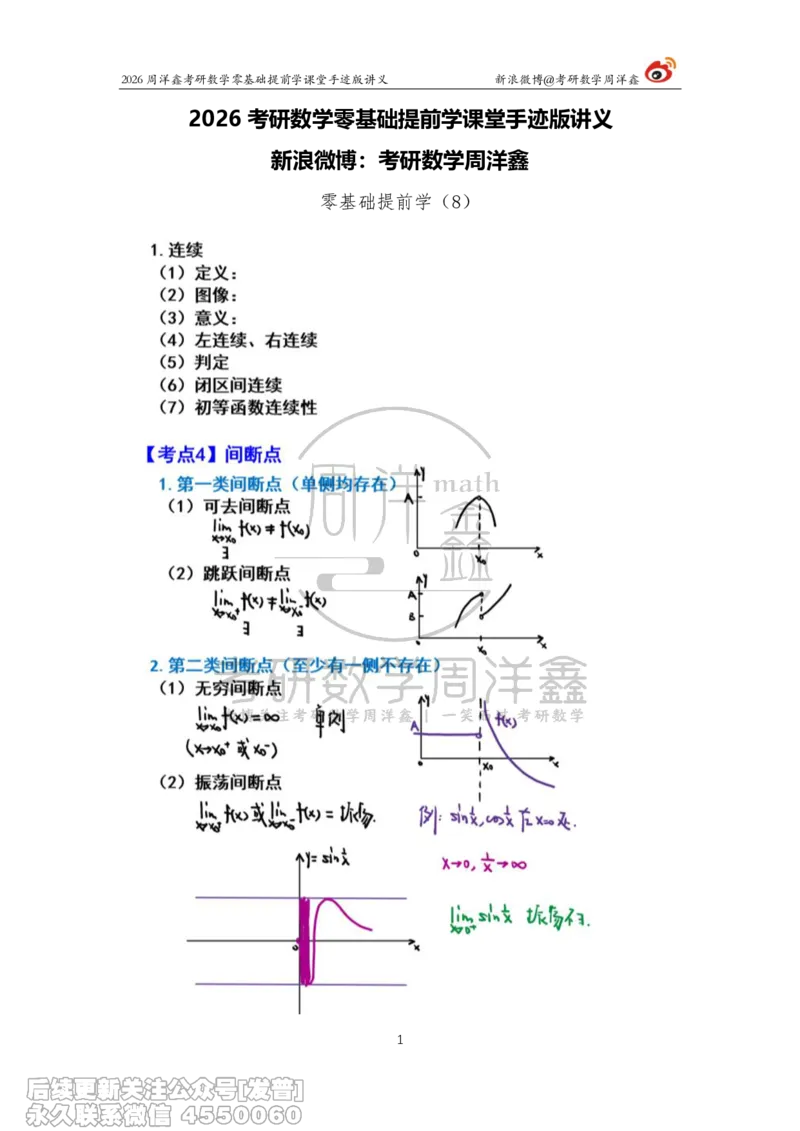 2026 周洋鑫考研数学零基础提前学课堂手迹版讲义 新浪微博@考研数学周洋鑫
2026 考研数学零基础提前学课堂手迹版讲义
新浪微博：考研数学周洋鑫
零基础提前学（8）
1. 连续
（1）定义：
（2）图像：
（3）意义：
（4）左连续、右连续
（5）判定
（6）闭区间连续
（7）初等函数连续性
【考点4】间断点
1. 第一类间断点（单侧均存在）
（1）可去间断点
lim f(x) ≠ f(x₀)
x→x₀
∃
y
A
0
x₀
x
（2）跳跃间断点
lim f(x) ≠ lim f(x)
x→x₀⁺ x→x₀⁻
∃ ∃
y
A
B
x₀
x
2. 第二类间断点（至少有一侧不存在）
（1）无穷间断点
lim f(x) = ∞ 单侧
x→x₀
(x→x₀⁺ 或 x₀⁻)
y
A
f(x)
x₀
x
（2）振荡间断点
lim f(x) 或 lim f(x) = 振荡.
x→x₀⁺ x→x₀⁻
例: sin 1/x, cos 1/x 在 x=0 处.
y = sin 1/x
x→0, 1/x→∞
lim sin 1/x 振荡不∃.
x→0⁺
0
x
周洋鑫
math
考研数学周洋鑫
微博关注考研数学周洋鑫 | 一笑而过考研数学
1
后续更新关注公众号[发普]
永久联系微信 4550060